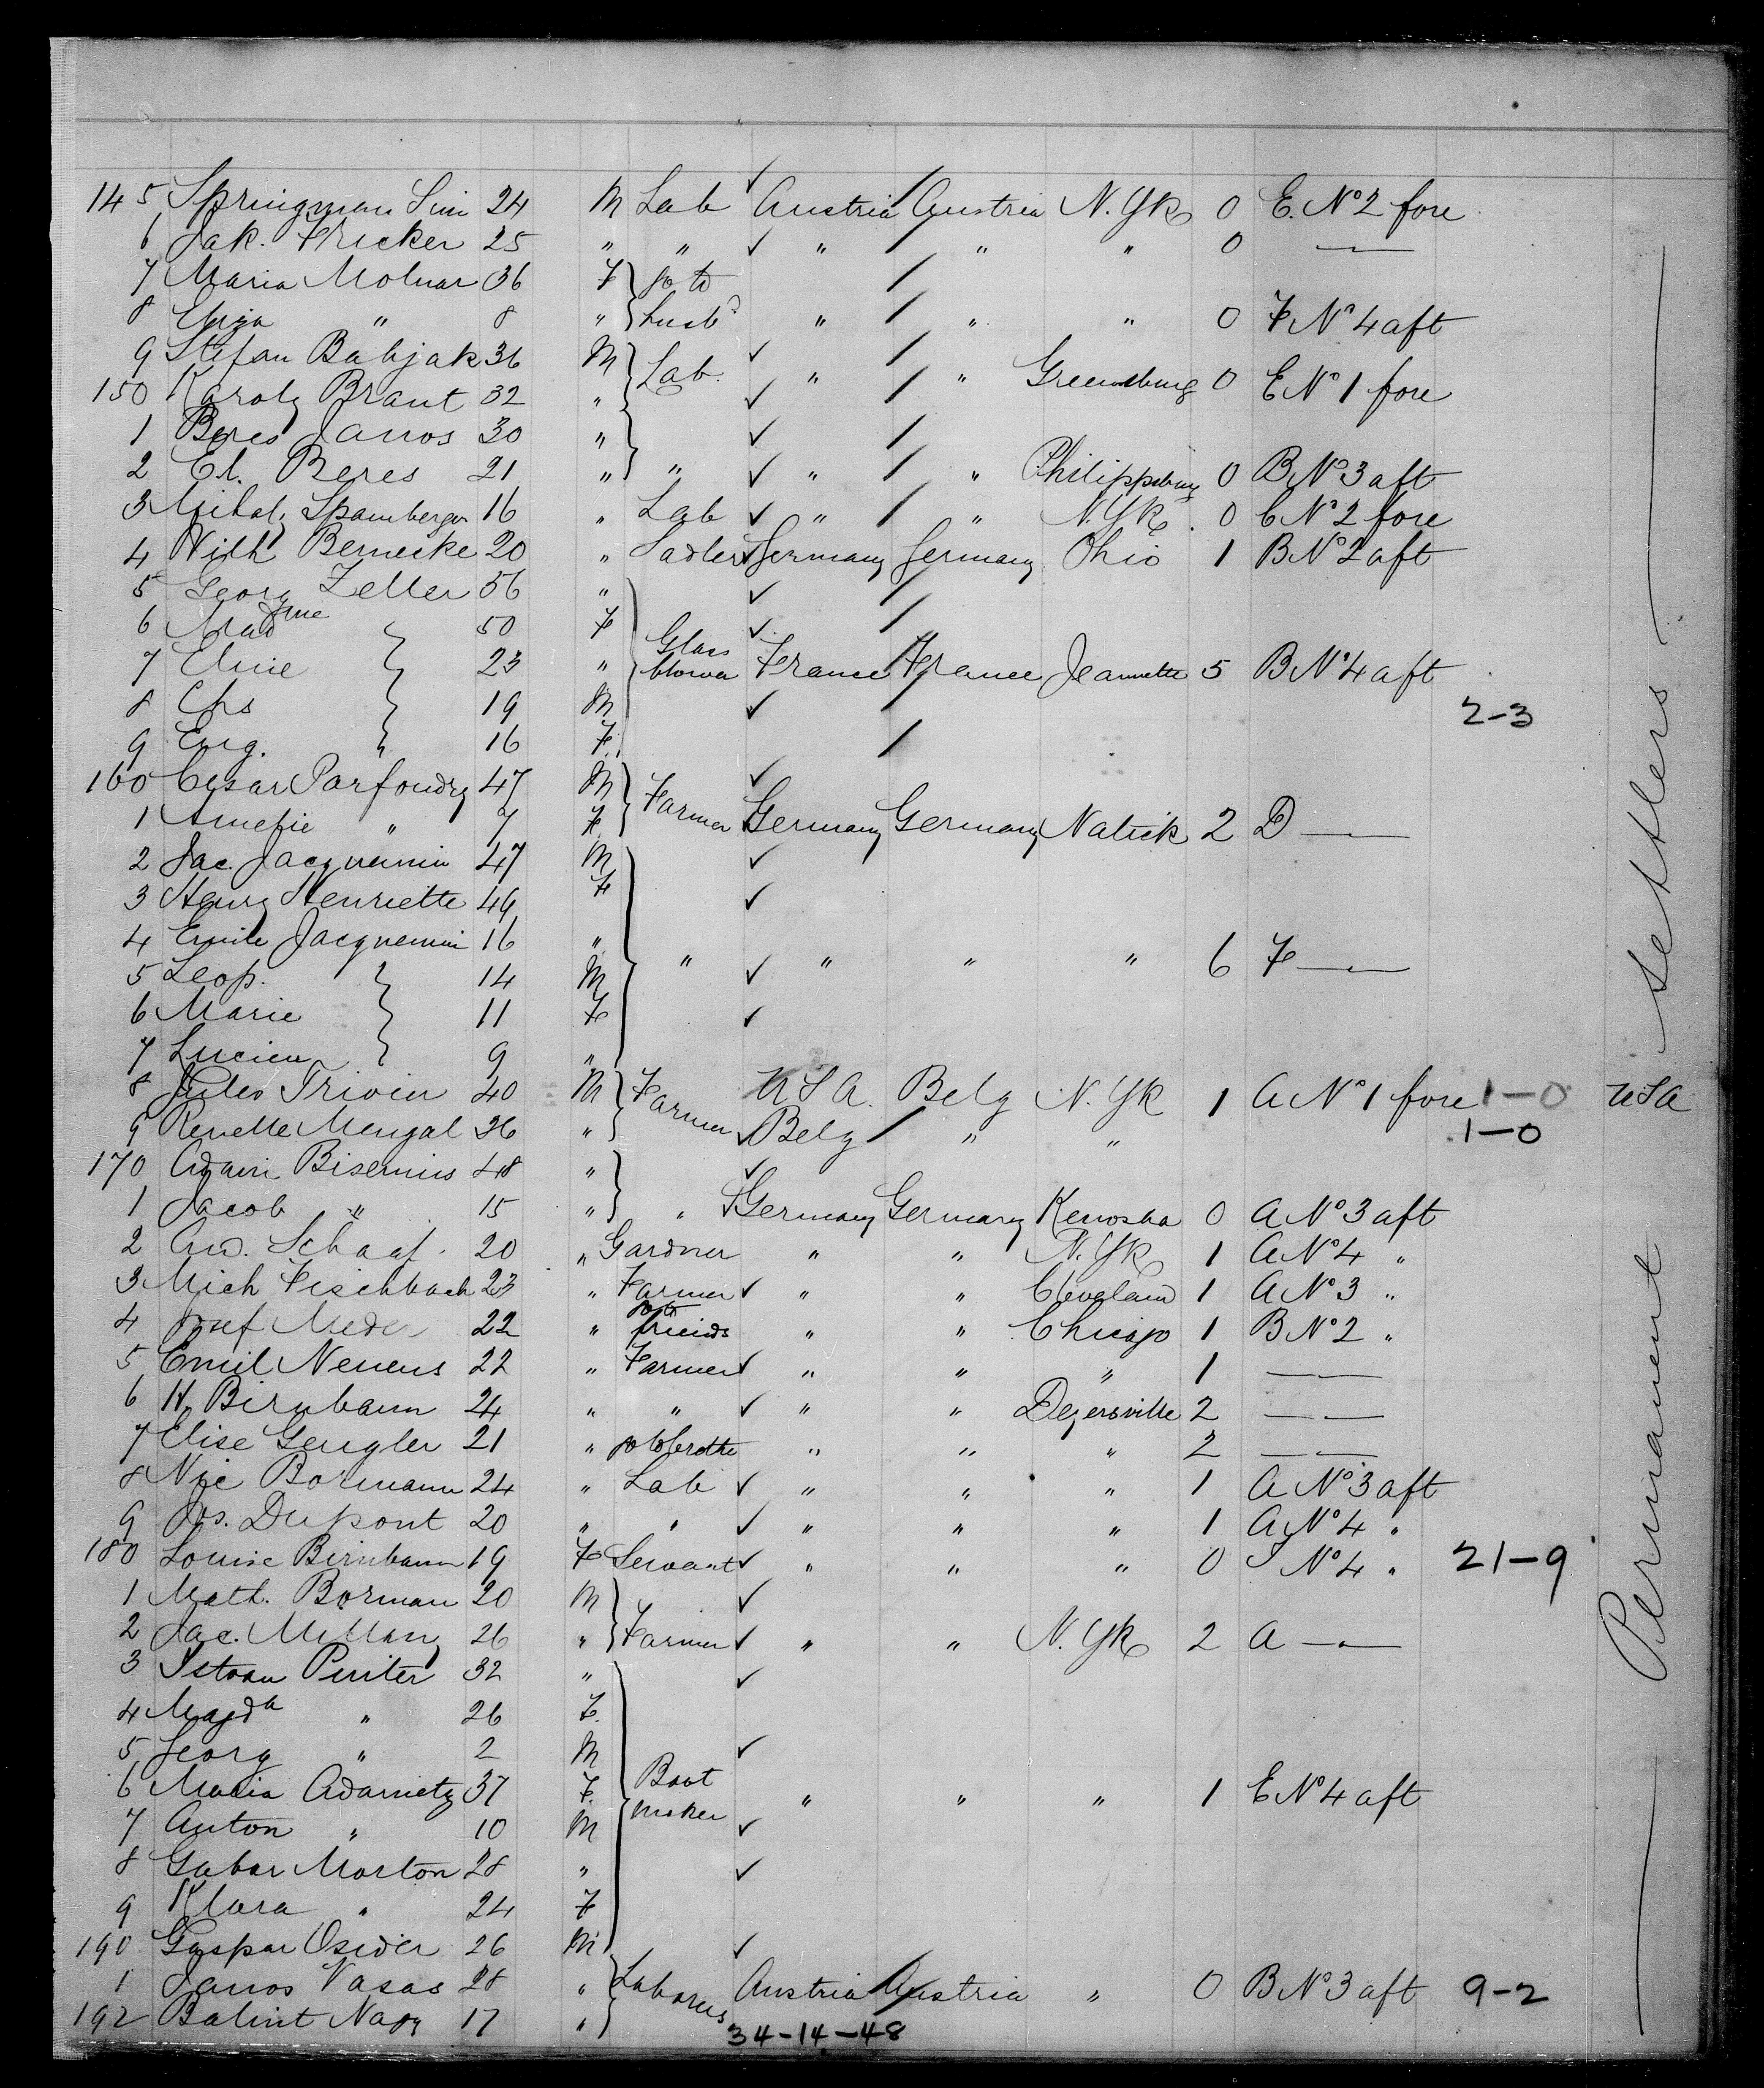 145 Springman Sim 24 M Lab Austria Austria N.Yk 0 E. No 2 fore
6 Jak. Fricker 25 " " " " " 0 —"—
7 Maria Molnar 36 F go to
8 " 8 " husbd " " " 0 F No 4 aft
9 Stefan Babjak 36 M
150 Karoly Braut 32 " Lab. " " Greensburg 0 E No 1 fore
1 Beres Janos 30 "
2 El. Beres 21 " " " " Philippsburg 0 B No 3 aft
3 Mihaly Spamberger 16 " Lab " " N.Yk. 0 C No 2 fore
4 Wilh Berneske 20 " Sadler Germany Germany Ohio 1 B No 2 aft
5 Georg Zeller 56 "
6 Madme 50 F
7 Elise 23 " Glass blower France France Jeannette 5 B No 4 aft
8 Chs 19 M 2-3
9 Eug. " 16 F
160 Cesar Parfondry 47 M
1 Amelie " 7 F Farmer Germany Germany Natick 2 D —"—
2 Jac. Jacquemin 47 M
3 Henry Henriette 49 F
4 Emile Jacquemin 16 "
5 Leop. 14 M " " " " 6 F —"—
6 Marie 11 F
7 Lucien 9 "
8 Jules Trivier 40 M Farmer USA. Belg N.Yk 1 A No 1 fore 1-0 USA
9 Renelle Mengal 36 " Belg " " 1-0
170 Adam Bisernius 48 "
1 Jacob " 15 " " Germany Germany Kenosha 0 A No 3 aft
2 And. Schaaf 20 " Gardner " " N.Yk 1 A No 4 "
3 Mich Fischbach 23 " Farmer " " Cleveland 1 A No 3 "
4 Josef Meder 22 " go to friends " " Chicago 1 B No 2 "
5 Emil Neuens 22 " Farmer " " " 1 —"—
6 H. Birnbaum 24 " " " " Dezersville 2 —"—
7 Elise Gengler 21 " go to broth " " " 2 —"—
8 Nic Bormann 24 " Lab " " " 1 A No 3 aft
9 Jos. Dupont 20 " " " " " 1 A No 4 "
180 Louise Birnbaum 19 F Servant " " " 0 No 4 " 21-9
1 Math. Borman 20 M
2 Jac. Millang 26 " Farmer " " N.Yk 2 A —"—
3 Istvan Puriter 32 "
4 Magda " 26 F.
5 Georg " 2 M
6 Maria Adametz 37 F. Boot maker " " " 1 E No 4 aft
7 Anton " 10 M
8 Gabor Morton 28 "
9 Klara " 24 F
190 Gaspar Osider 26 M
1 Janos Vasas 28 " Laborers Austria Austria " 0 B No 3 aft 9-2
192 Balint Nagy 17 "
34-14-48
— Permanent settlers —